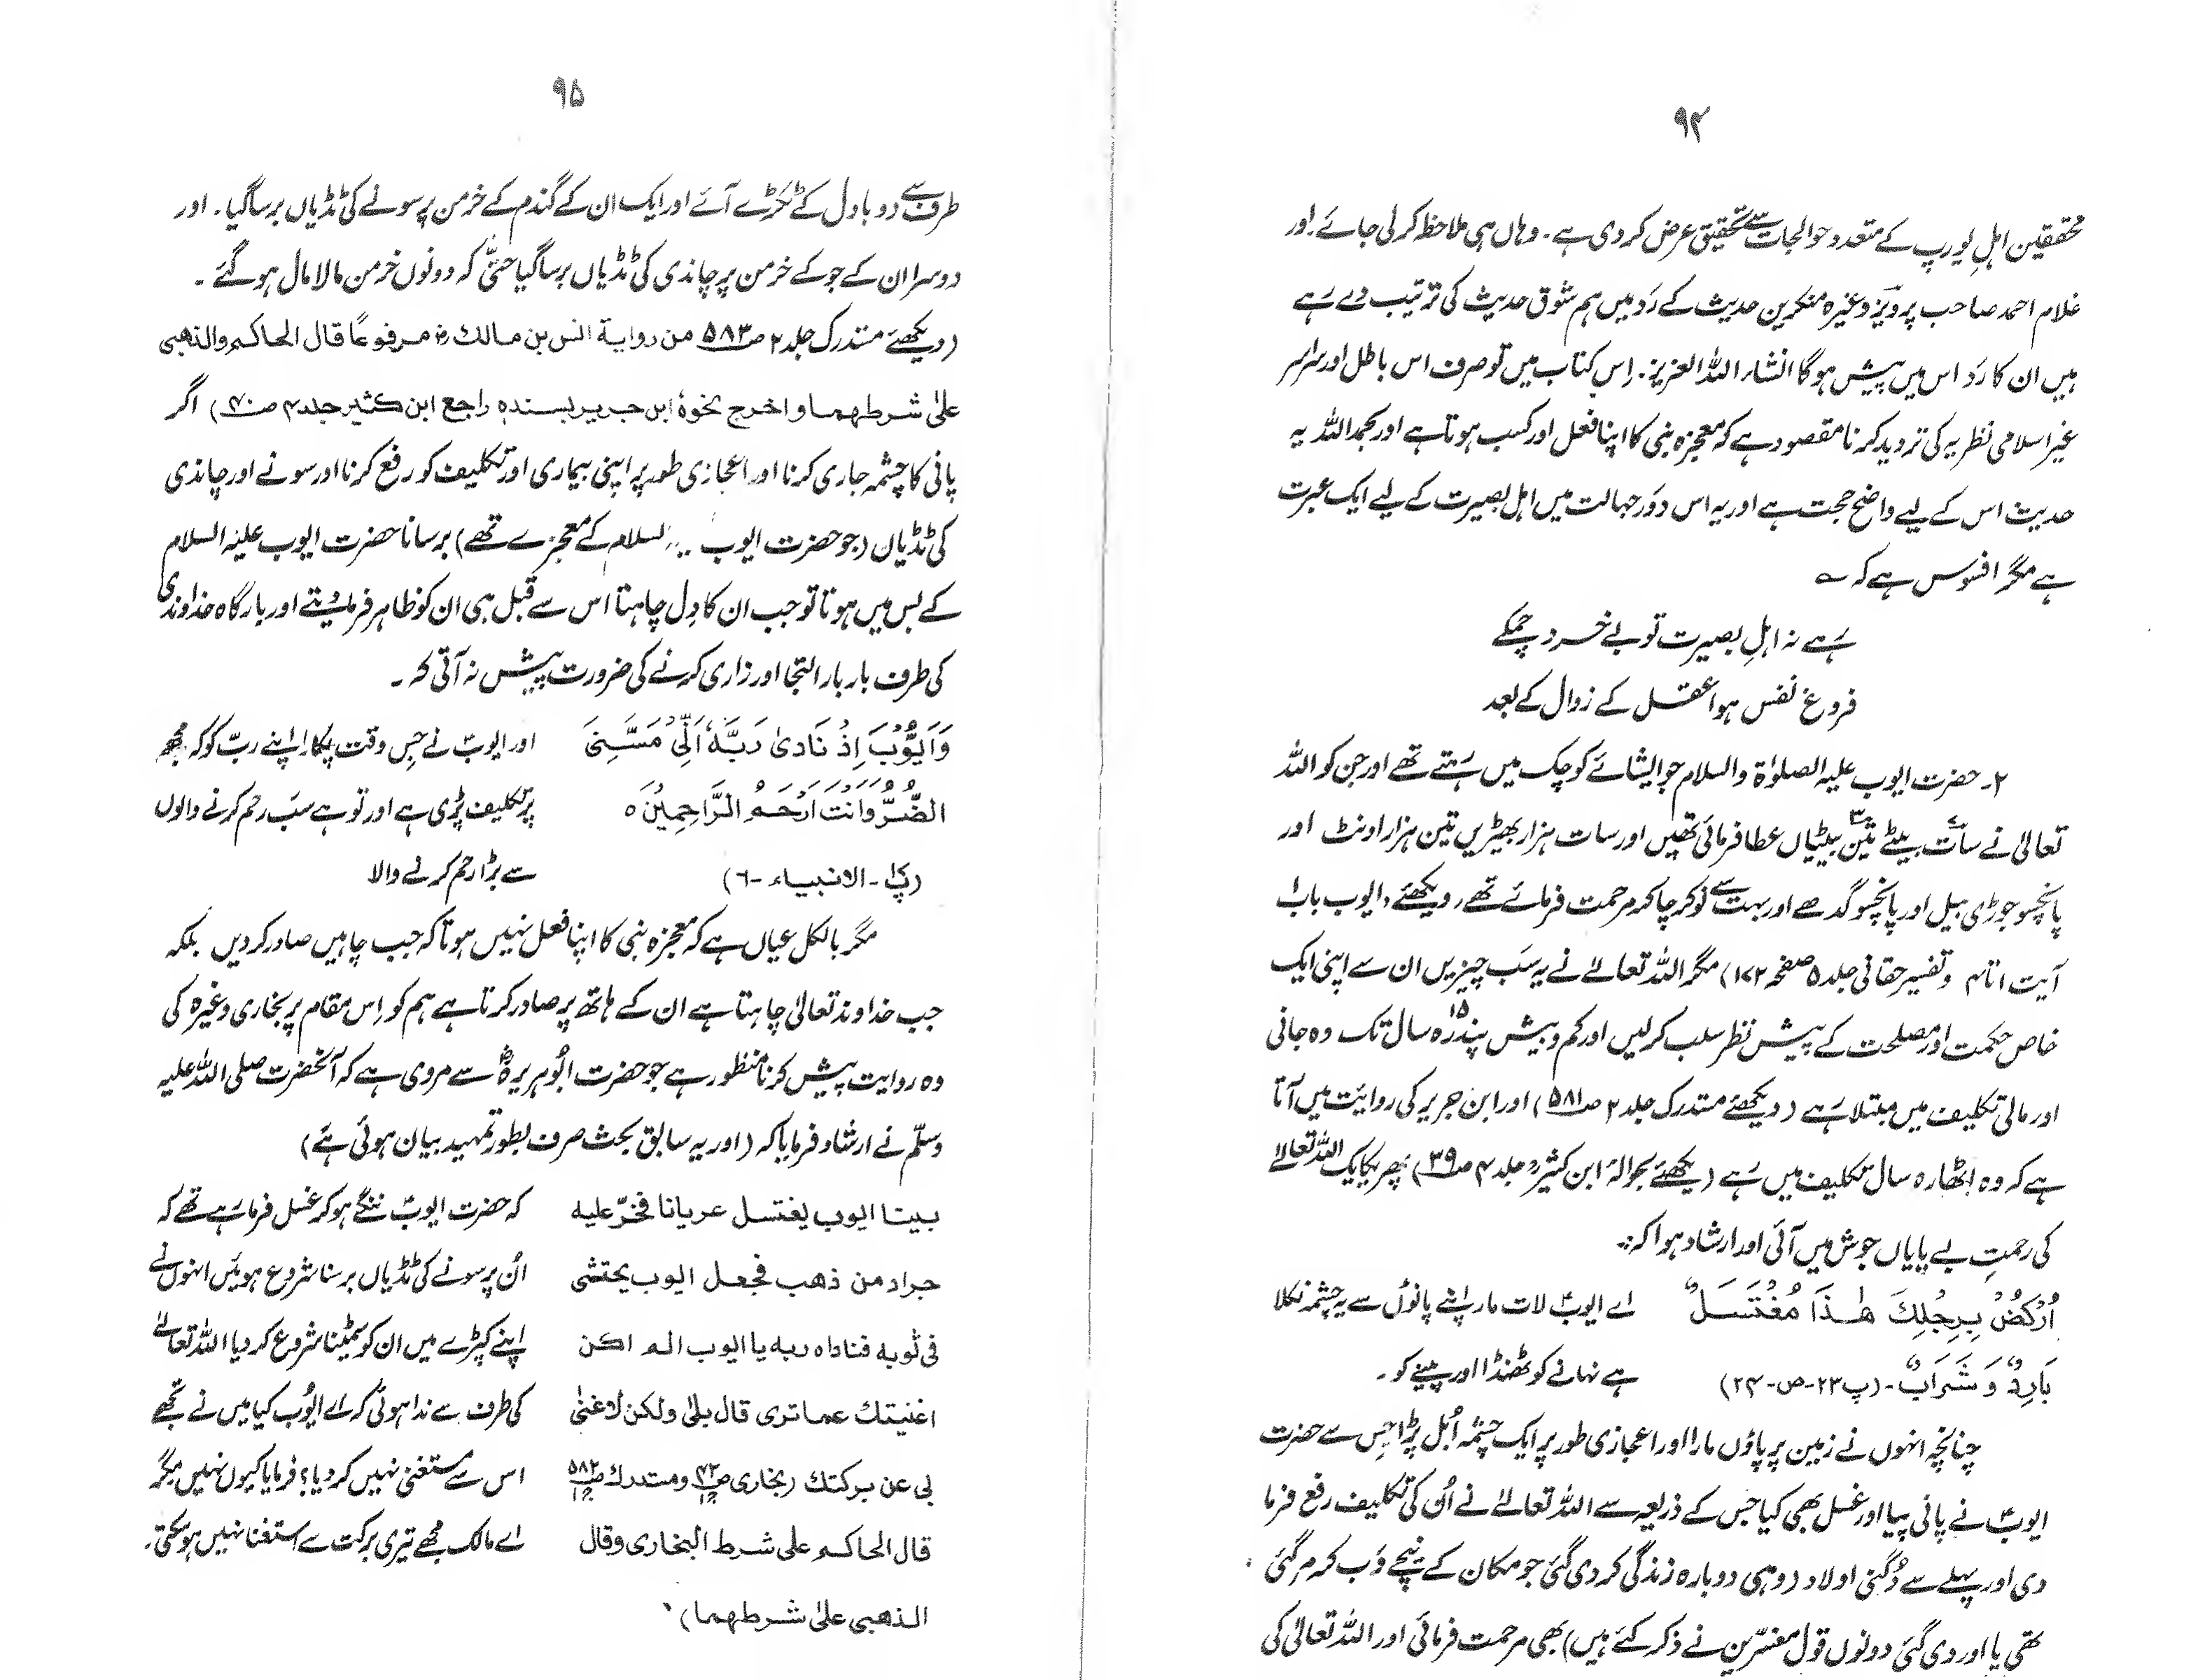 ۹۴
محققین اہلِ یورپ کے متعدد حوالجات سے تحقیق عرض کر دی ہے۔ وہاں ہی ملاحظ کر لی جائے۔ اور
غلام احمد صاحب پرویز وغیرہ منکرین حدیث کے رَد میں ہم شوق حدیث کی ترتیب دے رہے
ہیں ان کا رَد اس میں پیش ہو گا انشاء اللہ العزیز۔ اِس کتاب میں تو صرف اس باطل اور سراسر
غیر اسلامی نظریہ کی تردید کرنا مقصود ہے کہ معجزہ نبی کا اپنا فعل اور کسب ہوتا ہے اور بحمد اللہ یہ
حدیث اس کے لیے واضح حجت ہے اور یہ اس دَور جہالت میں اہل بصیرت کے لیے ایک عبرت
ہے مگر افسوس ہے کہ ؎
رہے نہ اہلِ بصیرت تو بے خرد چمکے
فروغ نفس ہوا عقل کے زوال کے بعد
۲۔ حضرت ایوب علیہ الصلوٰۃ والسلام جو ایشائے کوچک میں رہتے تھے اور جن کو اللہ
تعالیٰ نے سات بیٹے تین بیٹیاں عطا فرمائی تھیں اور سات ہزار بھیڑیں تین ہزار اونٹ اور
پانچسو جوڑی بیل اور پانچسو گدھے اور بہت سے نوکر چاکر مرحمت فرمائے تھے، (دیکھئے، ایوب باب ۱
آیت ۱ تا ۴ و تفسیر حقانی جلد ۵ صفحہ ۱۷۲) مگر اللہ تعالےٰ نے یہ سَب چیزیں ان سے اپنی ایک
خاص حکمت اور مصلحت کے پیش نظر سلب کر لیں اور کم و بیش پندرہ ۱۵ سال تک وہ جانی
اور مالی تکلیف میں مبتلا رہے (دیکھئے مستدرک جلد ۲ صـ۵۸۱) اور ابن جریر کی روایت میں آتا
ہے کہ وہ اٹھارہ سال تکلیف میں رہے (دیکھئے بحوالہ ابن کثیرؒ جلد ۴ صـ۳۹) پھر یکایک اللہ تعالےٰ
کی رحمتِ بے پایاں جوش میں آئی اور ارشاد ہوا کہ:۔
اُرْكُضْ بِرِجْلِكَ هٰذَا مُغْتَسَلٌ اے ایوبؑ لات مار اپنے پانوں سے یہ چشمہ نکلا
بَارِدٌ وَّ شَرَابٌ۔ (پ ۲۳-ص-۲۴) ہے نہانے کو ٹھنڈا اور پینے کو۔
چنانچہ انہوں نے زمین پر پاؤں مارا اور اعجازی طور پر ایک چشمہ اُبل پڑا جس سے حضرت
ایوبؑ نے پانی پیا اور غسل بھی کیا جس کے ذریعہ سے اللہ تعالےٰ نے اُن کی تکلیف رفع فرما
دی اور پہلے سے دُگنی اولاد (وہی دوبارہ زندگی کر دی گئی جو مکان کے نیچے دَب کر مر گئی
تھی یا اور دی گئی دونوں قول مفسّرین نے ذکر کئے ہیں) بھی مرحمت فرمائی اور اللہ تعالیٰ کی
۹۵
طرف سے دو بادل کے ٹکڑے آئے اور ایک ان کے گندم کے خرمن پر سونے کی ٹڈیاں برسا گیا۔ اور
دوسرا ان کے جو کے خرمن پر چاندی کی ٹڈیاں برسا گیا حتیٰ کہ دونوں خرمن مالا مال ہو گئے۔
(دیکھئے مستدرک جلد ۲ صـ۵۸۳ من روایة انس بن مالك رض مرفوعًا قال الحاكم والذهبی
علیٰ شرطهما و اخرج نحوهٗ ابن جریر بسندهٖ راجع ابن كثیر جلد ۴ صـ۴۰) اگر
پانی کا چشمہ جاری کرنا اور اعجازی طور پر اپنی بیماری اور تکلیف کو رفع کرنا اور سونے اور چاندی
کی ٹڈیاں (جو حضرت ایوب السلام کے معجزے تھے) برسانا حضرت ایوب علیہ السلام
کے بس میں ہوتا تو جب ان کا دِل چاہتا اس سے قبل ہی ان کو ظاہر فرما دیتے اور بارگاہ خداوندی
کی طرف بار بار التجا اور زاری کرنے کی ضرورت پیش نہ آتی کہ۔
وَاَيُّوْبَ اِذْ نَادىٰ رَبَّهٗ اَنِّىْ مَسَّنِىَ اور ایوبؑ نے جس وقت پکارا اپنے ربّ کو کہ مجھ
الضُّرُّ وَاَنْتَ اَرْحَمُ الرَّاحِمِيْنَ ه پر تکلیف پڑی ہے اور تو ہے سَب رحم کرنے والوں
(پ۱۷-الانبیاء-٦) سے بڑا رحم کرنے والا
مگر بالکل عیاں ہے کہ معجزہ نبی کا اپنا فعل نہیں ہوتا کہ جب چاہیں صادر کر دیں بلکہ
جب خداوند تعالیٰ چاہتا ہے ان کے ہاتھ پر صادر کرتا ہے ہم کو اِس مقام پر بخاری وغیرہ کی
وہ روایت پیش کرنا منظور ہے جو حضرت ابُو ہریرہؓ سے مروی ہے کہ آنحضرت صلی اللہ علیہ
وسلّم نے ارشاد فرمایا کہ (اور یہ سابق بحث صرف بطور تمہید بیان ہوئی ہے)
بینا ایوب یغتسل عریانا فخرّ علیه کہ حضرت ایوبؑ ننگے ہو کر غسل فرما رہے تھے کہ
جراد من ذهب فجعل ایوب یحتثی اُن پر سونے کی ٹڈیاں برسنا شروع ہوئیں انہوں نے
فی ثوبه فناداه ربه یا ایوب الم اكن اپنے کپڑے میں ان کو سمیٹنا شروع کر دیا اللہ تعالےٰ
اغنیتك عما تری قال بلیٰ ولكن لا غنیٰ کی طرف سے ندا ہوئی کہ اے ایُوب کیا میں نے تجھے
بی عن بركتك (بخاری صـ۴۲ ج۱ ومستدرك صـ۵۸۲ ج۲ اس سے مستغنی نہیں کر دیا؟ فرمایا کیوں نہیں مگر
قال الحاكم علی شرط البخاری وقال اے مالک مجھے تیری برکت سے استغنا نہیں ہو سکتی۔
الذهبی علیٰ شرطهما)